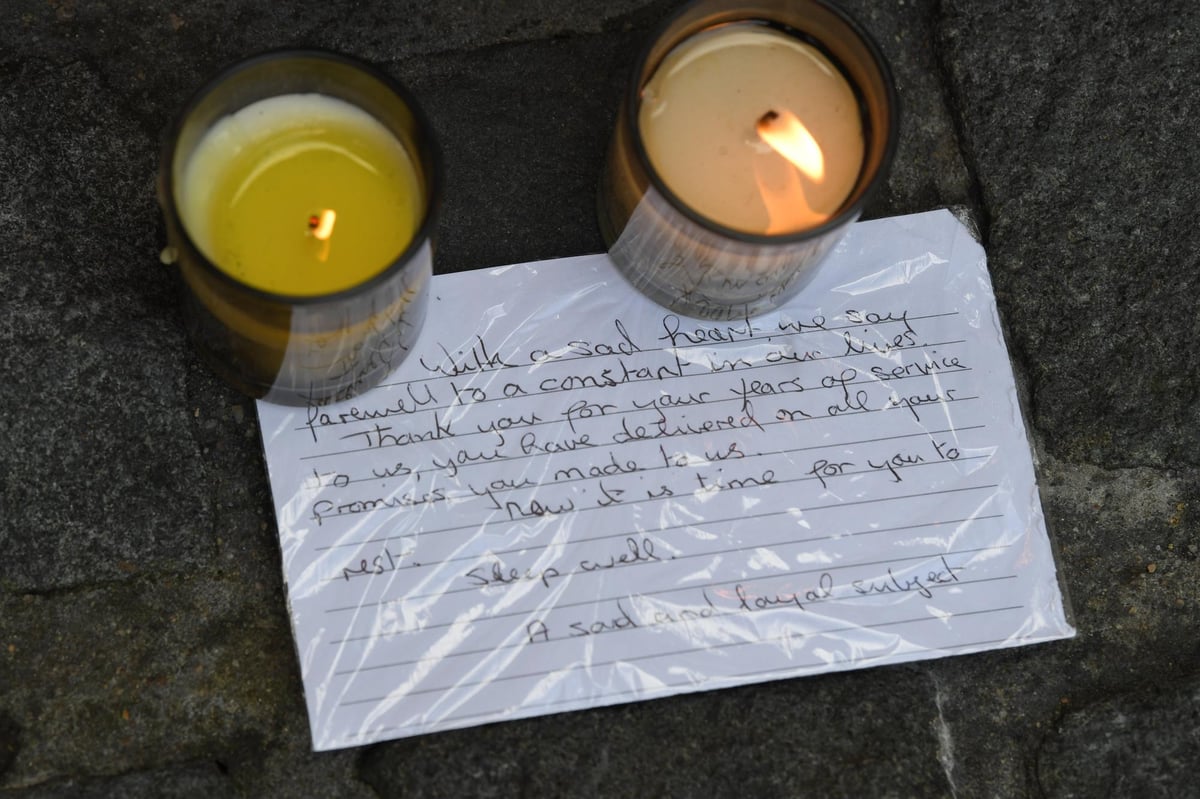 With a sad heart we say
farewell to a constant in our lives.
Thank you for your years of service
to us, you have delivered on all your
promises you made to us.
now it is time for you to
rest. Sleep well.
A sad and loyal subject